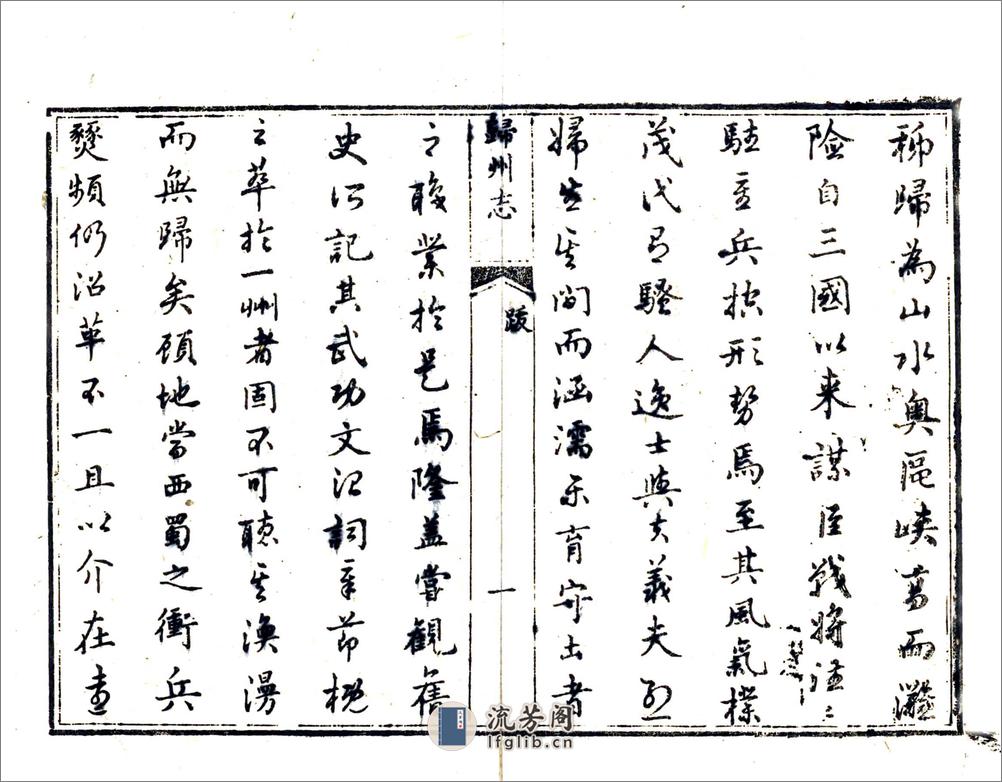 秭歸為山水奧區峽高而灘
險自三國以來謀臣戰將往〻
駐重兵控形勢焉至其風氣樸
茂代有騷人逸士與夫義夫烈
婦生其間而涵濡樂育守土者
歸州志
跋
一
之職業於是焉隆蓋嘗觀舊
史所記其武功文治詞章節概
之萃於一州者固不可聽其漶漫
而無歸矣顧地當西蜀之衝兵
燹頻仍沿革不一且以介在
流芳阁
lfglib.cn